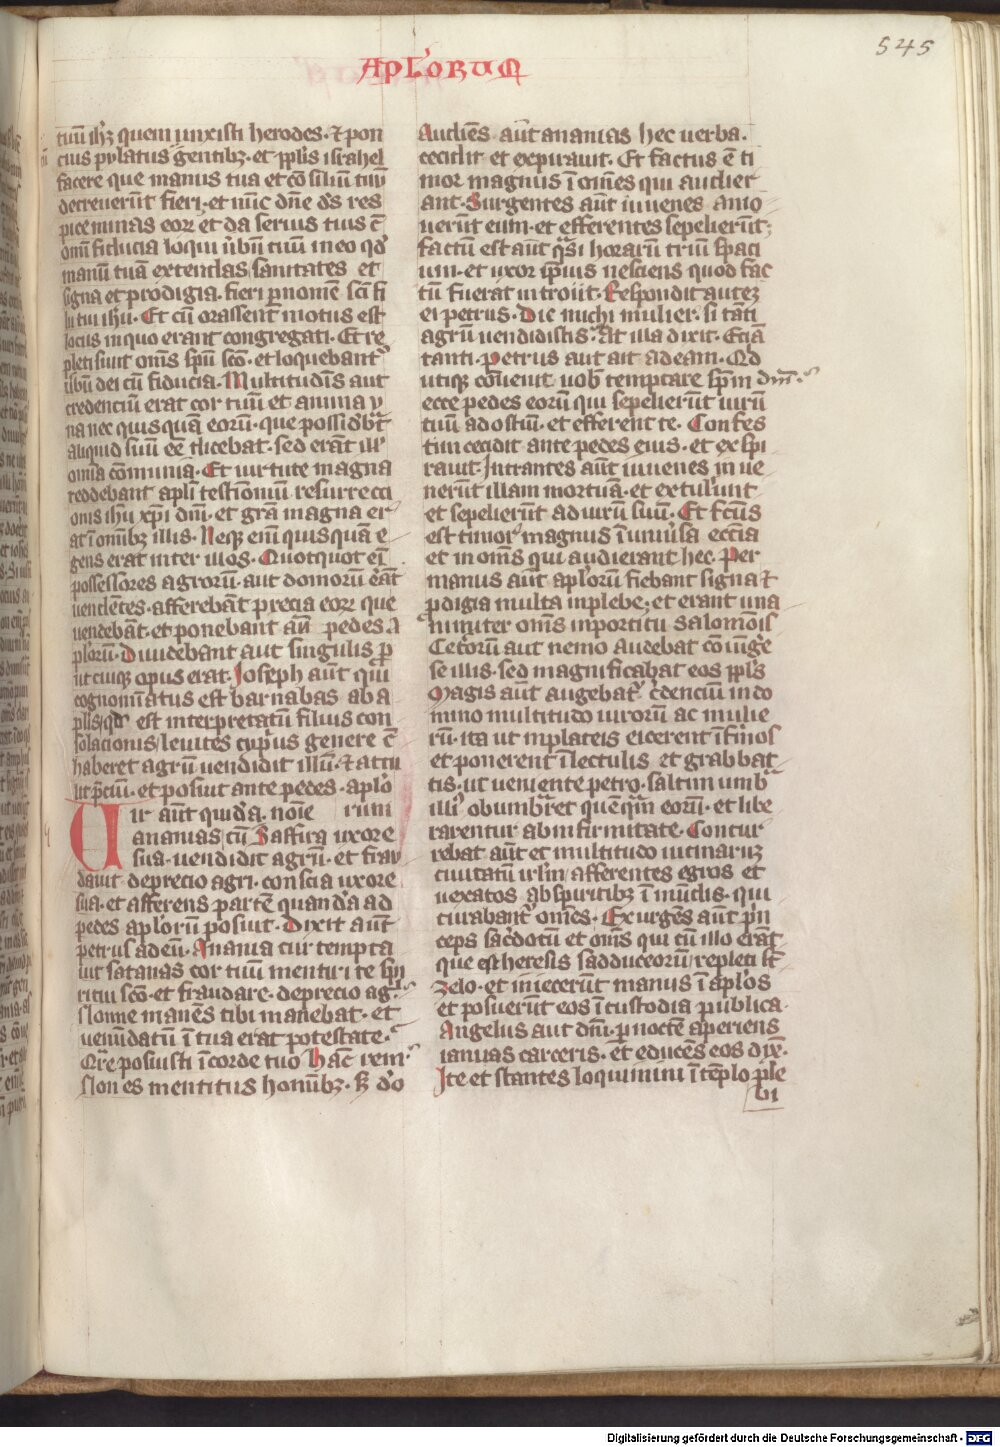 545
Apl'orum
tuū ih'z quem unxisti herodes. ⁊ pon
cius pylatus gentibꝫ. et pp̄lis israhel
facere que manus tua et cōsiliū tuū
decreuerūt fieri. et nūc dn̄e ds̄ res
pice minas eorꝝ et da seruis tuis cū
omī fiducia loqui ūbū tuū in eo qd'
manū tuā extendas sanitates et
signa et prodigia. fieri p nomē sc̄i fi
lii tui ihū. Et cū orassent motus est
locus in quo erant congregati. Et re
pleti sunt om̄s spū scō. et loquebant'
ūbū dei cū fiducia. Multitudīs aut
credenciū erat cor vnū et anima v
na nec quisquā eorū. que possidēbt
aliquid suū eē dicebat. sed erāt ill'
omīa cōmunia. Et uirtute magna
reddebant apl'i testīoniū resurrecci
onis ihū xp̄i dn̄i. et grā magna er
at ī omībꝫ illis. Neqꝫ enī quisquā e
gens erat inter illos. Quotquot eī
possessores agrorū. aut domorū erāt
uendētes. afferebāt precia eorꝝ que
uendebāt. et ponebant an̄ pedes a
pl'orū. Diuidebant aut singulis p
ut cuiqꝫ opus erat. Joseph aūt qui
cognomīatus est barnabas ab a
pl'is qd est interpretatū filius con
solacionis leuites cyprius genere cū
haberet agrū uendidit illū. ⁊ attu
lit p̄ciū. et posuit ante pedes. aplo
Uir aūt quidā. noīe rum
ananias cū Saffira uxore
sua. uendidit agrū. et frau
dauit de precio agri. conscia uxore
sua. et afferens partē quandā ad
pedes apl'orū posuit. Dixit aūt
petrus ad eū. Anania cur tempta
uit satanas cor tuū mentiri te spi
ritui scō. et fraudare. de precio ag̃.
Nonne manēs tibi manebat. et
uenūdatū ī tua erat potestate.
Qr̄e posuisti ī corde tuo hāc rem.
Non es mentitus homībꝫ. sꝫ dō
Audiēs aūt ananias hec uerba.
cecidit et expirauit. Et factus ē ti
mor magnus ī om̄es qui audier
ant. Surgentes aūt iuuenes amo
uerūt eum. et efferentes sepelierūt;
factū est aūt q̄si horarū triū spaci
um. et uxor ip̄ius nesciens quod fac
tū fuerat introiit. Respondit autez
ei petrus. Dic michi mulier. si tāti
agrū uendidistis. At illa dixit. Eciā
tanti. petrus aut ait ad eam. Qd
utiqꝫ cōuenit uob̄ temptare sp̄m dn̄i.
ecce pedes eorū qui sepelierūt uirū
tuū ad ostiū. et efferent te. Confes
tim cecidit ante pedes eius. et expi
rauit. Intrantes aūt iuuenes inue
nerūt illam mortuā. et extul'unt
et sepelierūt ad uirū suū. Et fc̄us
est timor magnus ī uniūsa ecc̄ia
et in om̄s qui audierant hec. Per
manus aūt apl'orū fiebant signa ⁊
p̄digia multa in plebe; et erant una
nimiter om̄s in porticu salomōis
Cet'orū aut nemo audebat cōiūge
se illis. sed magnificabat eos pp̄l's
Magis aūt augebat' c̄denciū in do
mino multitudo uirorū ac mulie
rū. ita ut in plateis eicerent īfirmos
et ponerent ī lectulis et grabbat
tis. ut ueniente petro. saltim umb
illi' obumbr̄et quēq̄m eorū. et libe
rarentur ab infirmitate. Concur
rebat aūt et multitudo uicinarꝝ
ciuitatū irl'm afferentes egros et
uexatos ab spiritibꝫ ī mūdis. qui
curabant' om̄es. Exurgēs aūt p̄n
ceps sac̄dotū et om̄s qui cū illo erāt
que est heresis sadduceorū repleti sū
zelo. et iniecerūt manus ī apl'os
et posuerūt eos ī custodia publica.
Angelus aut dn̄i. p noctē aperiens
ianuas carceris. et educēs eos dix̄.
Ite et stantes loquimini ī tēplo ple
bi
Digitalisierung gefördert durch die Deutsche Forschungsgemeinschaft - DFG